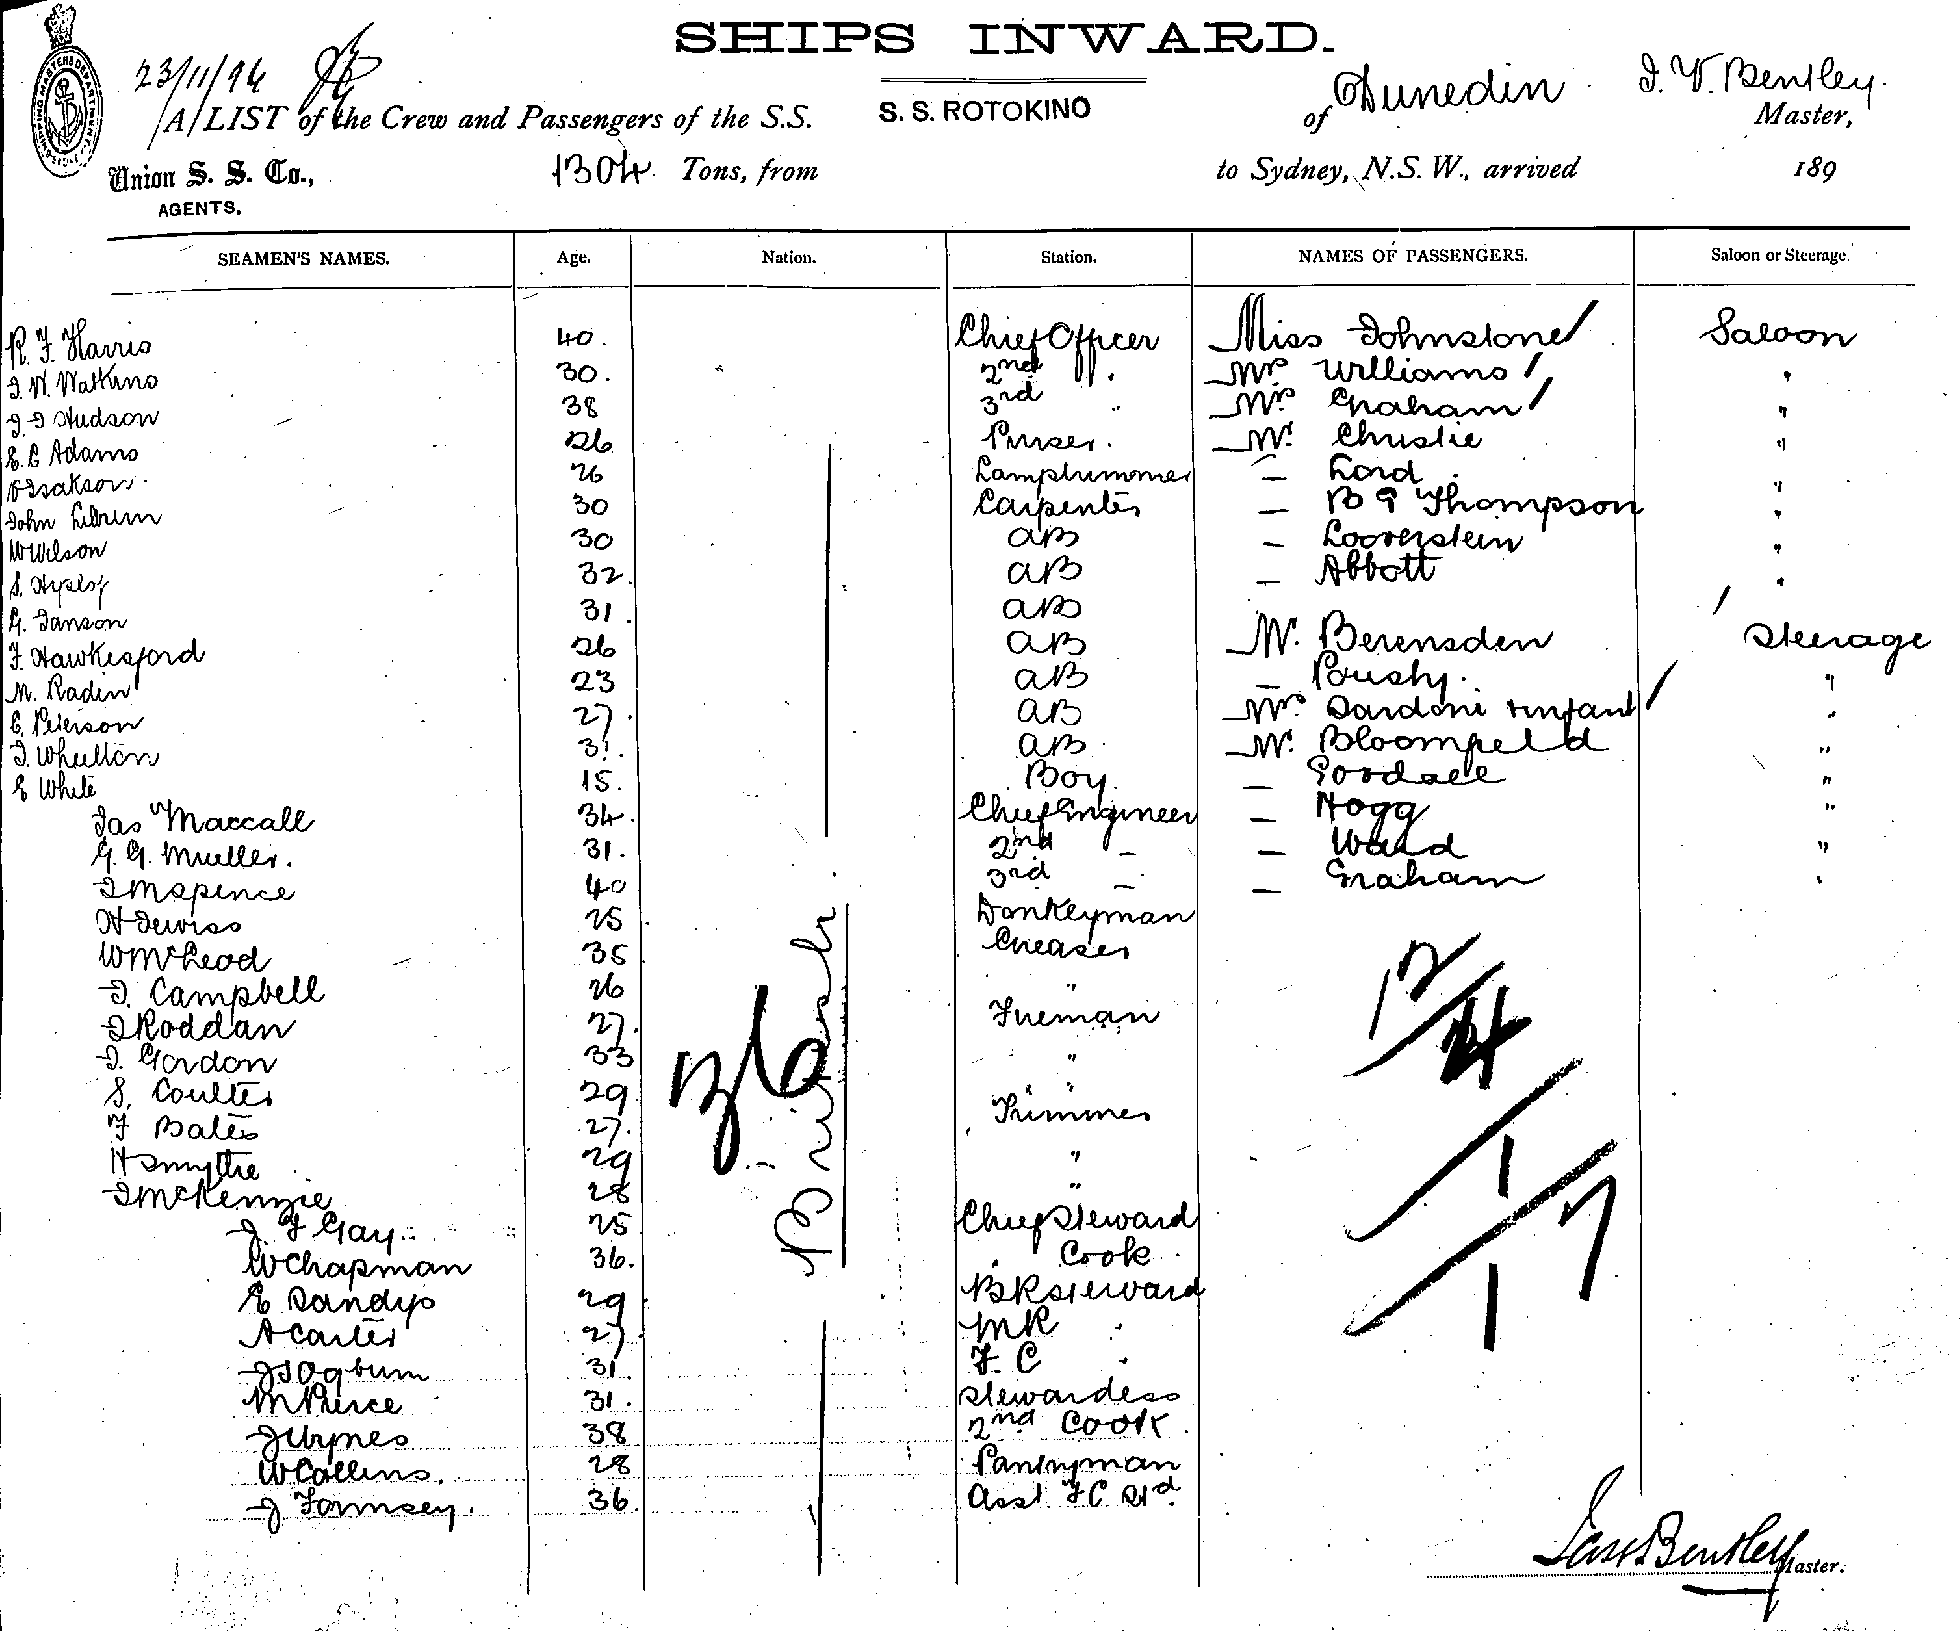 SHIPS INWARD.
23/11/94
A LIST of the Crew and Passengers of the S.S. S. S. ROTOKINO of Dunedin J. W. Bentley. Master,
Union S. S. Co., AGENTS. 1304 Tons, from to Sydney, N.S.W., arrived 189
SEAMEN'S NAMES. Age. Nation. Station. NAMES OF PASSENGERS. Saloon or Steerage.
R. F. Harris 40. Chief Officer Miss Johnstone Saloon
J. W. Watkins 30. 2nd " Mrs Williams "
J. J Hudson 38 3rd " Mrs Graham "
E. C Adams 26 Purser. Mr. Christie "
Isakson 26 Lamptrimmer — Lord "
John 30 Carpenter — B G Thompson "
W Wilson 30 AB — Looverstein "
S. Hyslop 32 AB — Abbott "
G. Janson 31 AB
F. Hawkesford 26 AB Mr. Berensden Steerage
M. Radin 23 AB — "
E. Peterson 27 AB Mrs Sardoni & infant "
J. Whelton 31. AB Mr. Bloompeld "
E White 15. Boy — Goodsell "
Jas Maccall 34 Chief Engineer — Hogg "
G. G. Mueller. 31. 2nd — — Ward "
J M Spence 40 3rd — — Graham "
H Dewiss 25 Donkeyman
W McLeod 35 Greaser
J. Campbell 26 "
J Roddan 27. Fireman
J. Gordon 33 "
S. Coulter 29 "
F Bates 27. Trimmer
H Smythe 29 "
J McKenzie 28 "
J. F Gay. 25 Chief Steward
W Chapman 36. " Cook
E Sandys 29 BK Steward
A Carter 27 MR "
J S Ogburn 31 F. C "
M Pierce 31. Stewardess
J Wynes 38 2nd Cook
W Collins. 28 Pantryman
J Formsey. 36 Asst F C Std
British
36
12
4
1
1 7
Jas W Bentley Master.